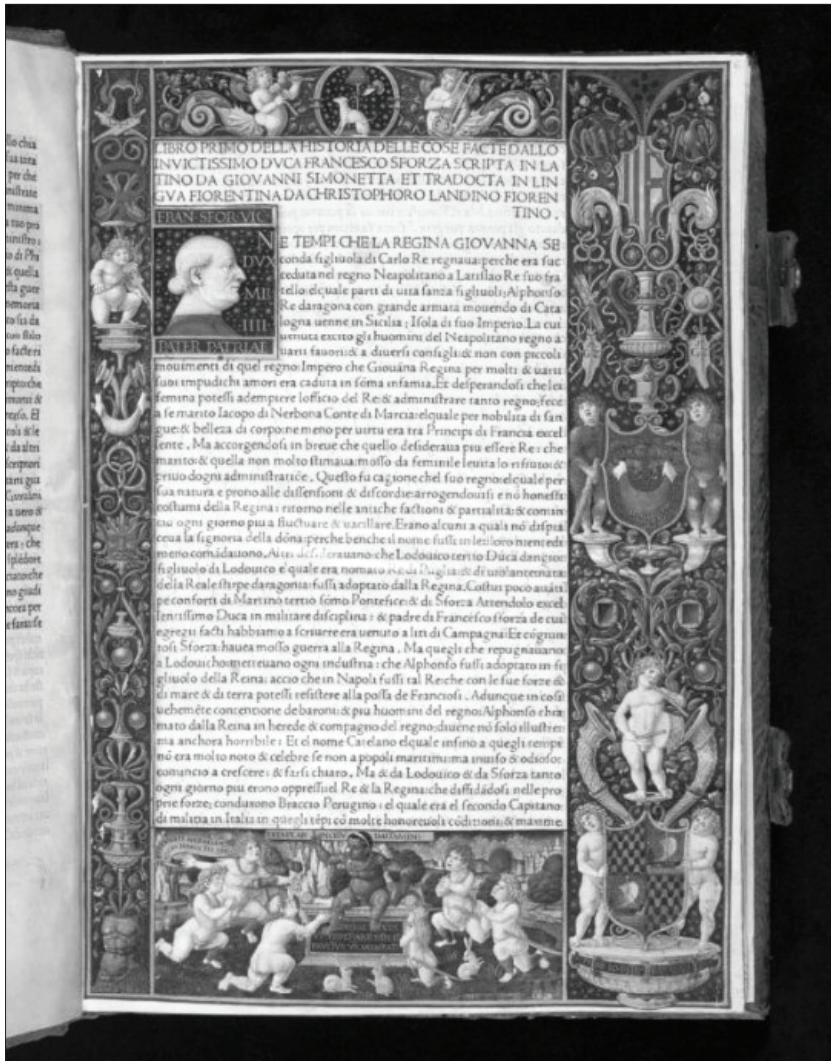 LIBRO PRIMO DELLA HISTORIA DELLE COSE FACTE DALLO
INVICTISSIMO DVCA FRANCESCO SFORZA SCRIPTA IN LA
TINO DA GIOVANNI SIMONETTA ET TRADOCTA IN LIN
GVA FIORENTINA DA CHRISTOPHORO LANDINO FIOREN
TINO.
FRAN. SFOR. VIC
DVX
MLI
IIII
PATER PATRIAE
NE TEMPI CHE LA REGINA GIOVANNA SE
conda figliuola di Carlo Re regnaua: perche era suc
ceduta nel regno Neapolitano a Latislao Re suo fra
tello: elquale parti di uita sanza figliuoli: Alphonso
Re daragona con grande armata mouendo di Cata
logna uenne in Sicilia: Isola di suo Imperio. La cui
uenuta excito gli huomini del Neapolitano regno a
uarii fauori: & a diuersi consigli: & non con piccoli
mouimenti di quel regno: Impero che Giouāna Regina per molti & uarii
suoi impudichi amori era caduta in sōma infamia. Et desperandosi che lei
femina potessi adempiere lofficio del Re: & administrare tanto regno: fece
a se marito Iacopo di Nerbona Conte di Marcia: elquale per nobilita di san
gue: & belleza di corpo: ne meno per uirtu era tra Principi di Francia excel
lente. Ma accorgendosi in breue che quello desideraua piu essere Re: che
marito: & quella non molto stimaua: mosso da feminile leuita lo rifiuto: &
priuo dogni administratiōe. Questo fu cagione chel suo regno: elquale per
sua natura e prono alle dissensioni & discordie: arrogendouisi e nō honesti
costumi della Regina: ritorno nelle antiche factioni & partialita: & comin
cio ogni giorno piu a fluctuare & uacillare. Erano alcuni a quali nō dispia
ceua la signoria della dōna: perche benche il nome fussi in lei: loro niente di
meno comādauono. Altri desiderauano che Lodouico tertio Duca dangio:
figliuolo di Lodouico e quale era nomato Re di Puglia: & di uiolante nata
della Reale stirpe daragonia: fussi adoptato dalla Regina. Costui poco auāti
pe conforti di Martino tertio sōmo Pontefice: & di Sforza Attendolo excel
lentissimo Duca in militare disciplina: & padre di Francesco sforza de cui
egregii facti habbiamo a scriuere era uenuto a liti di Campagna: Et cōgiun
tosi Sforza: hauea mosso guerra alla Regina. Ma quegli che repugnauano
a Lodouicho: metteuano ogni industria: che Alphonso fussi adoptato in fi
gliuolo della Reina: accio che in Napoli fussi tal Re: che con le sue forze &
di mare & di terra potessi resistere alla possa de Franciosi. Adunque in cosi
uehemēte contentione de baroni: & piu huomini del regno: Alphonso chia
mato dalla Reina in herede & compagno del regno: diuene nō solo illustre:
ma anchora horribile: Et el nome Catelano elquale infino a quegli tempi
nō era molto noto & celebre se non a popoli maritimi: ma inuiso & odioso:
comincio a crescere: & farsi chiaro. Ma & da Lodouico & da Sforza tanto
ogni giorno piu erono oppressi el Re & la Regina: che diffidādosi nelle pro
prie forze: condussono Braccio Perugino: el quale era el secondo Capitano
di militia in Italia in quegli tēpi cō molte honoreuoli cōditioni: & maxime